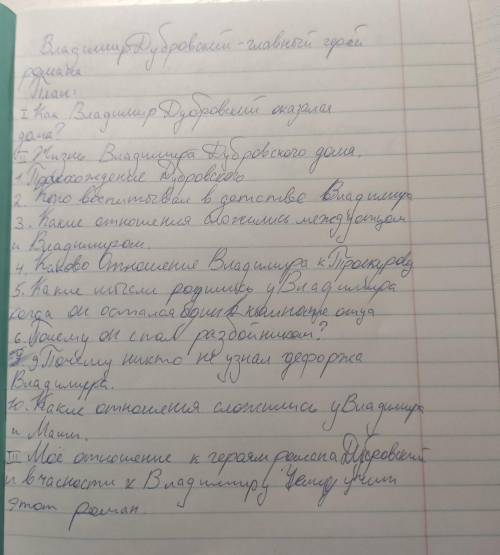 Владимир Дубровский - главный герой
романа
План:
I Как Владимир Дубровский оказался
дома?
II Жизнь Владимира Дубровского дома.
1. Происхождение Дубровского
2. Кого воспитывал в детстве Владимир
3. Какие отношения сложились между отцом
и Владимиром.
4. Каково отношение Владимира к Троекурову
5. Какие мысли родились у Владимира
когда он остался один в комнате отца
6. Почему он стал разбойником?
9 Почему никто не узнал дефоржа
Владимира.
10. Какие отношения сложились у Владимира
и Маши.
III Моё отношение к героям романа Дубровский
и в часности к Владимиру Чему учит
этот роман.